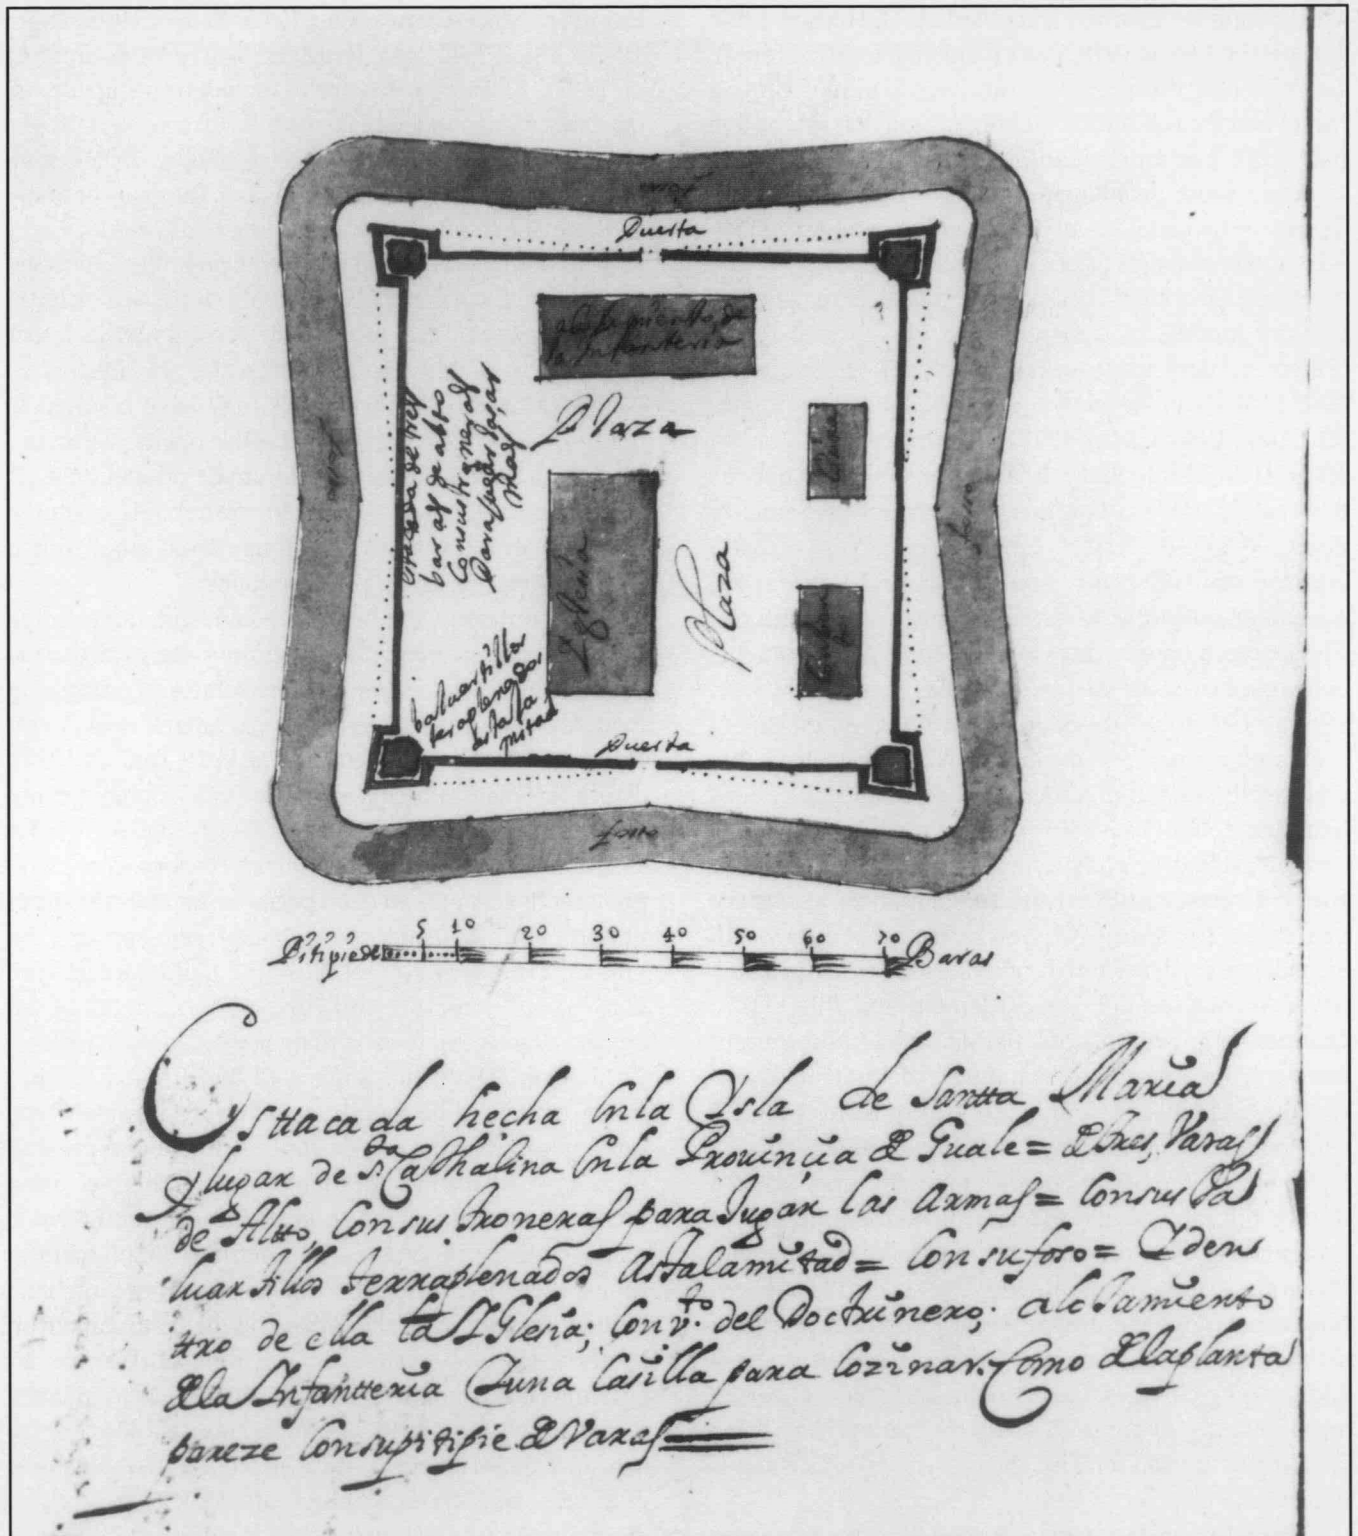 foso
Puerta
aloJamiento de
la Infanteria
Plaza
estacada de tres
baras de alto
Consus troneras
Para Jugar las ar
mas
foso
Cosina
foso
Yglesia
Plaza
Conbento
baluartillos
teraplenados
asta la
mitad
Puerta
foso
Pitipie de 5 10 20 30 40 50 60 70 Baras
Esttacada hecha Enla Ysla de Santta Maria
Y lugar de Sta Cathalina Enla Provinçia de Guale= de tres Varas
de Altto, Consus troneras para Jugar las Armas= Consus Ba
luartillos terraplenados Astalamitad= Consufoso= Y den
ttro de ella la YGlesia; Convto. del Doctrinero; aloJamiento
dela Infantteria Y una Casilla para Cozinar. Como dela planta
pareze Consupitipie de Varas